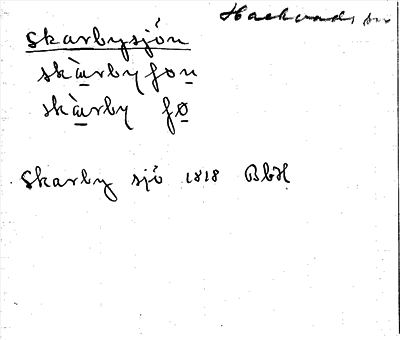 Hackvads sn
Skarbysjön
skàrby ʃon
skàrby ʃø
Skarby sjö 1818 BbH